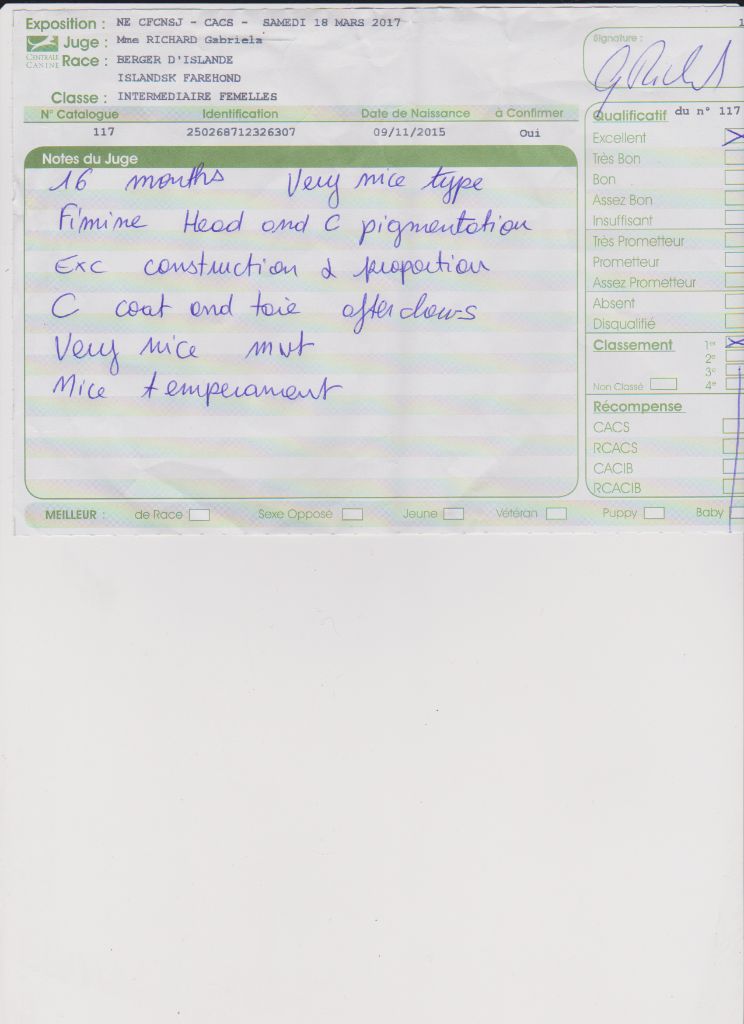 Exposition : NE CFCNSJ - CACS - SAMEDI 18 MARS 2017
CENTRALE CANINE
Juge : Mme RICHARD Gabriela
Race : BERGER D'ISLANDE
ISLANDSK FAREHOND
Classe : INTERMEDIAIRE FEMELLES
N° Catalogue Identification Date de Naissance à Confirmer
117 250268712326307 09/11/2015 Oui
Notes du Juge
16 months Very nice type
Fimine Head and C pigmentation
Exc construction & proportion
C coat and taie afterclows
Very nice mvt
Nice temperament
Signature :
G Richard
Qualificatif du n° 117
Excellent
Très Bon
Bon
Assez Bon
Insuffisant
Très Prometteur
Prometteur
Assez Prometteur
Absent
Disqualifié
Classement 1er
2e
3e
Non Classé 4e
Récompense
CACS
RCACS
CACIB
RCACIB
MEILLEUR : de Race Sexe Opposé Jeune Vétéran Puppy Baby